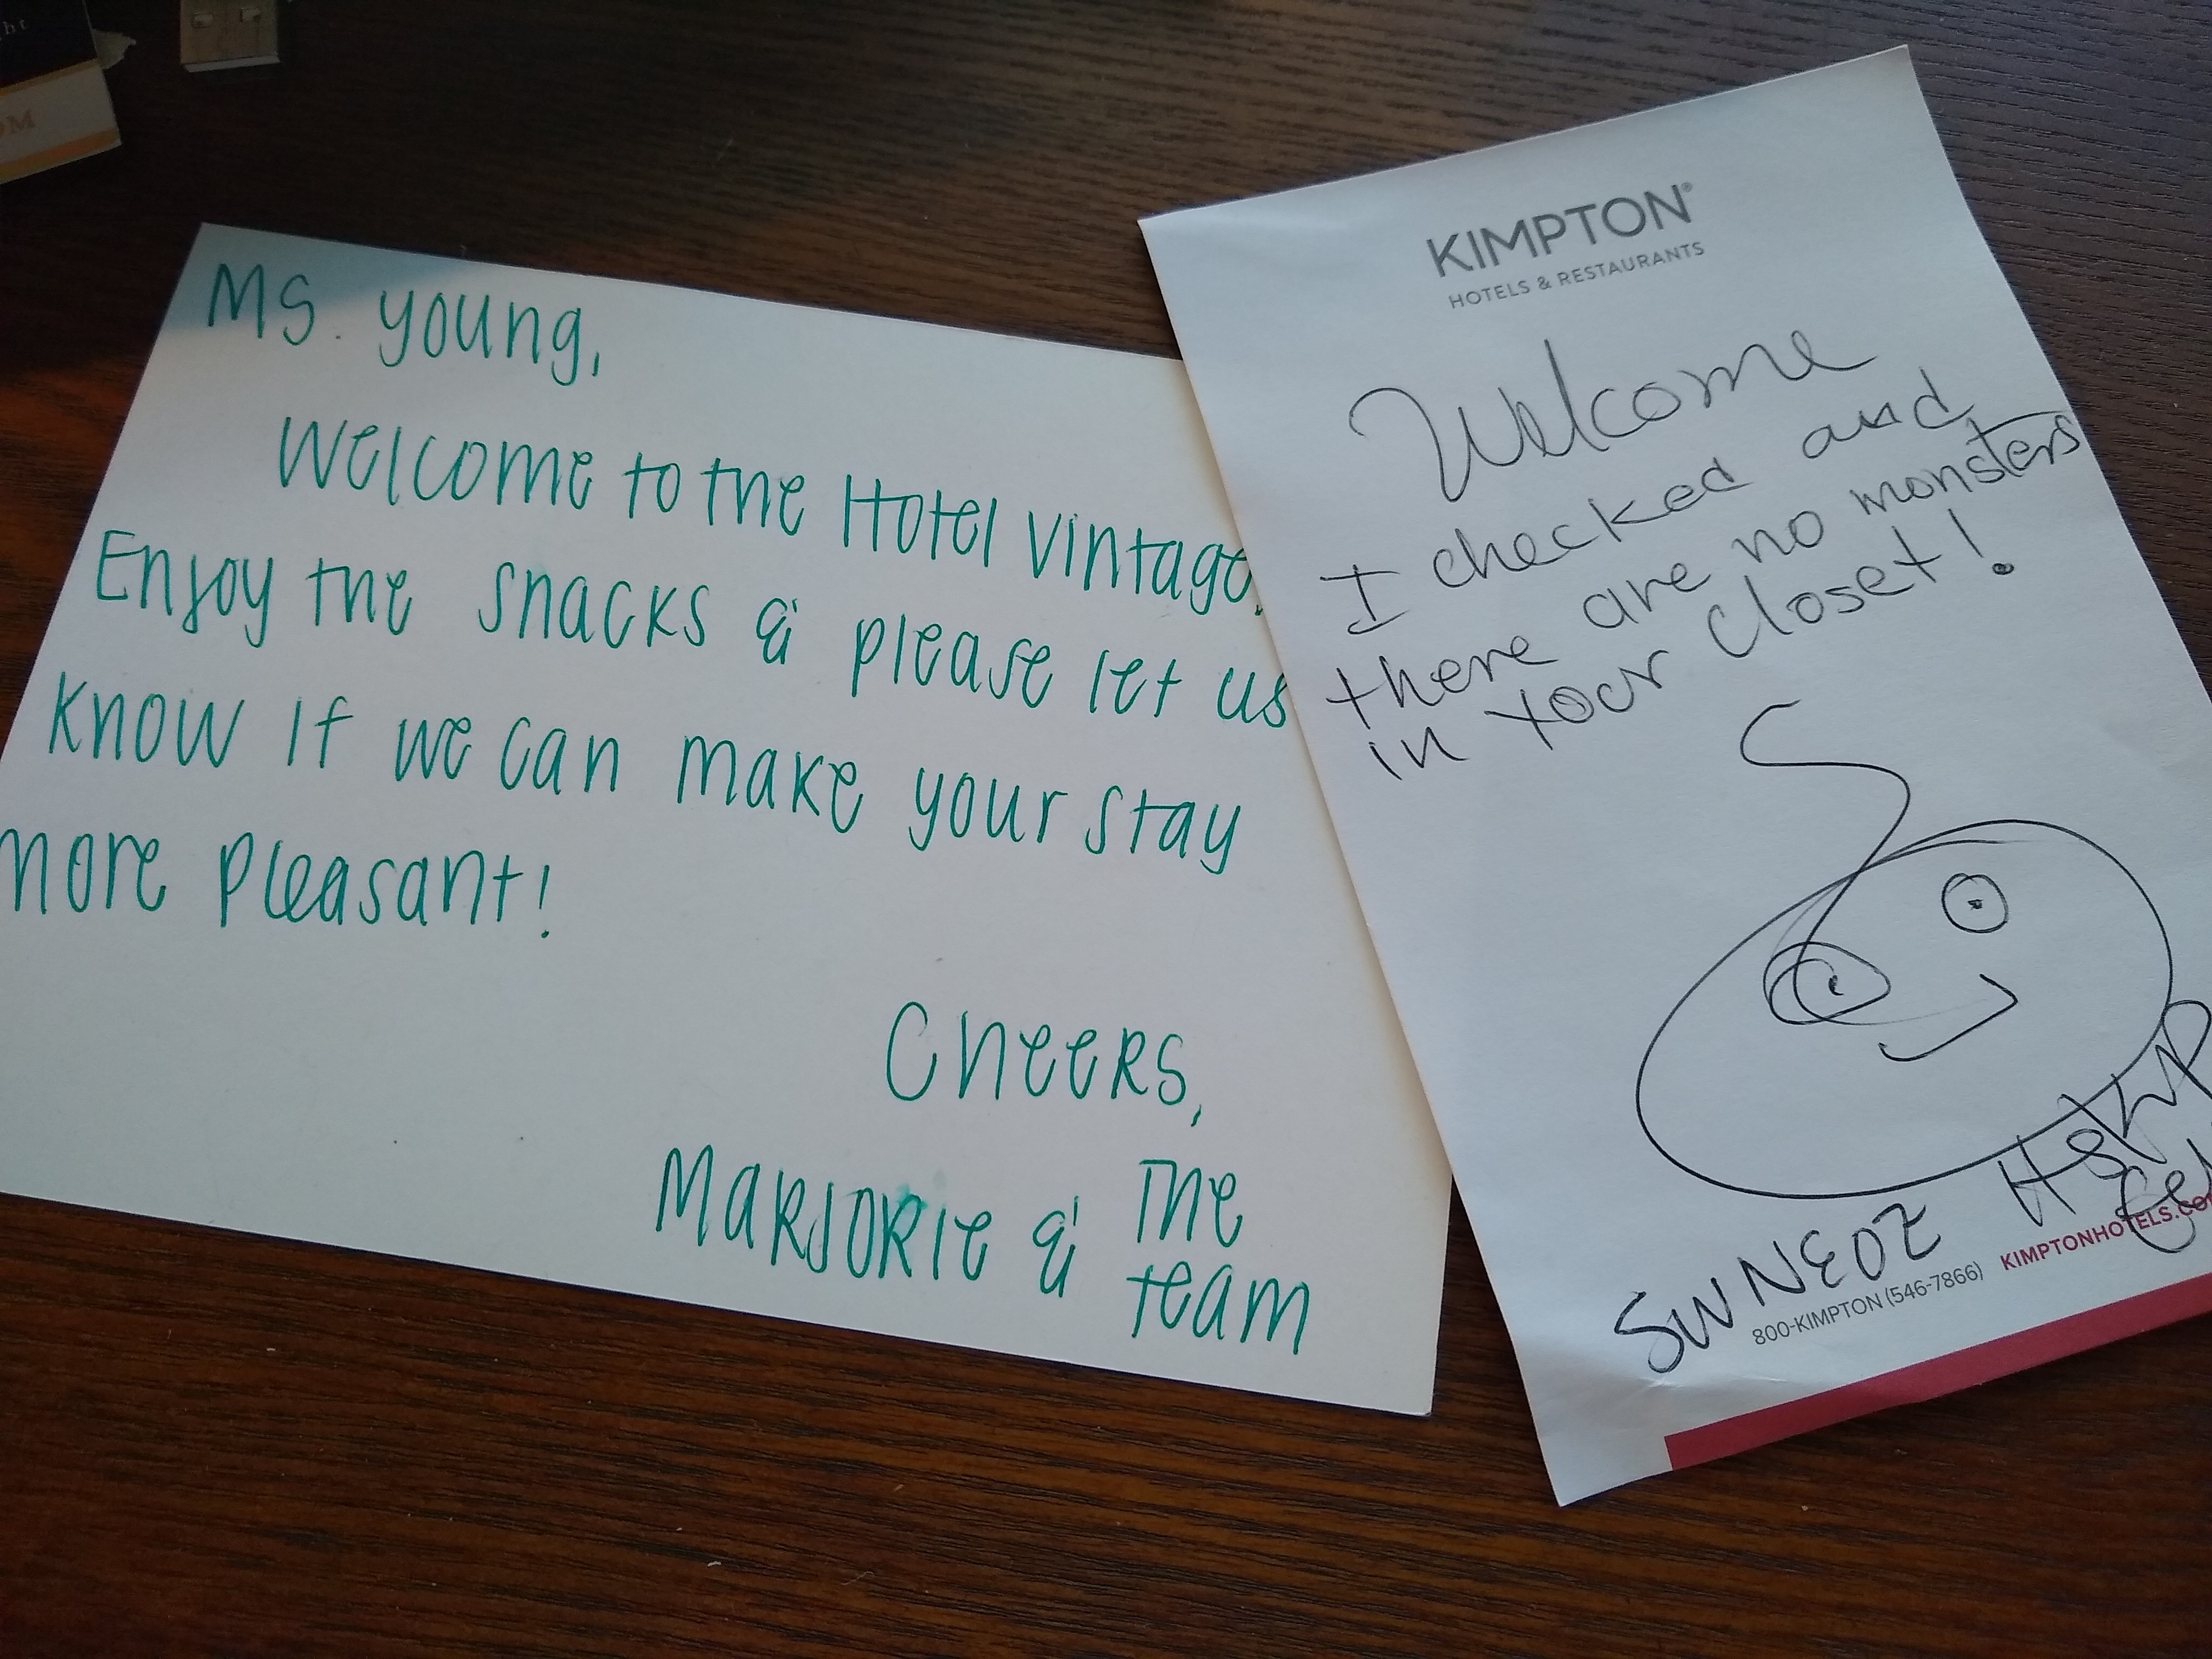 ht
OM
Ms. young,
Welcome to the Hotel Vintage.
Enjoy the snacks & please let us
know if we can make your stay
more pleasant!
Cheers,
Marjorie & The
team
KIMPTON®
HOTELS & RESTAURANTS
Welcome
I checked and
there are no monsters
in your closet!
800-KIMPTON (546-7866) KIMPTONHOTELS.CO